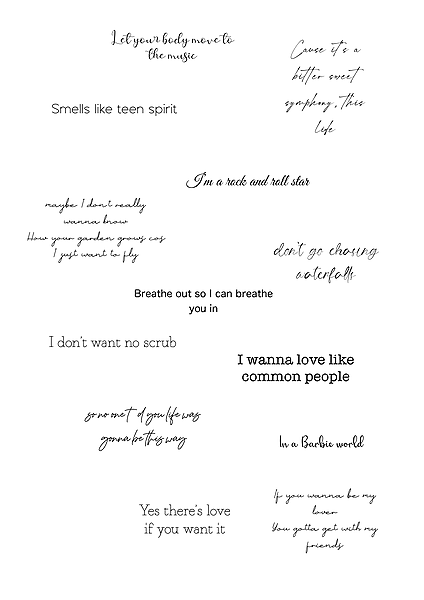 Let your body move to
the music
Cause it's a
bitter sweet
symphony, this
life
Smells like teen spirit
I'm a rock and roll star
maybe I don't really
wanna know
How your garden grows cos
I just want to fly
don't go chasing
waterfalls
Breathe out so I can breathe
you in
I don't want no scrub
I wanna love like
common people
so no one t d you life was
gonna be this way
In a Barbie world
Yes there's love
if you want it
If you wanna be my
lover
You gotta get with my
friends